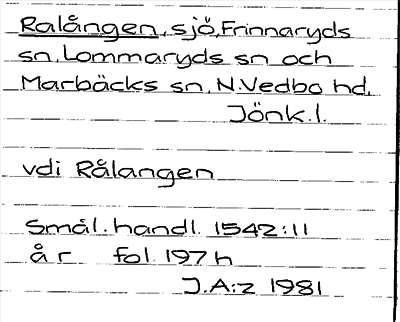 Ralången, sjö, Frinnaryds
sn, Lommaryds sn och
Marbäcks sn, N.Vedbo hd,
Jönk.l.
vdi Rålangen
Smål. handl. 1542:11
år fol 197 h
J.A:z 1981